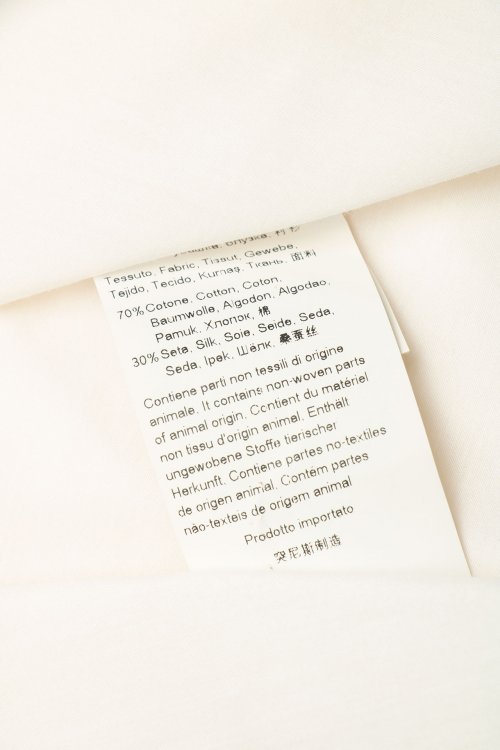 Блузка, 衬衫
Tessuto, Fabric, Tissut, Gewebe,
Tejido, Tecido, Kumaş, Ткань, 面料
70% Cotone, Cotton, Coton,
Baumwolle, Algodon, Algodao,
Pamuk, Хлопок, 棉
30% Seta, Silk, Soie, Seide, Seda,
Seda, Ipek, Шёлк, 桑蚕丝
Contiene parti non tessili di origine
animale. It contains non-woven parts
of animal origin. Contient du matériel
non tissu d'origin animal. Enthält
ungewobene Stoffe tierischer
Herkunft. Contiene partes no-textiles
de origen animal. Contém partes
não-texteis de origem animal
Prodotto importato
突尼斯制造